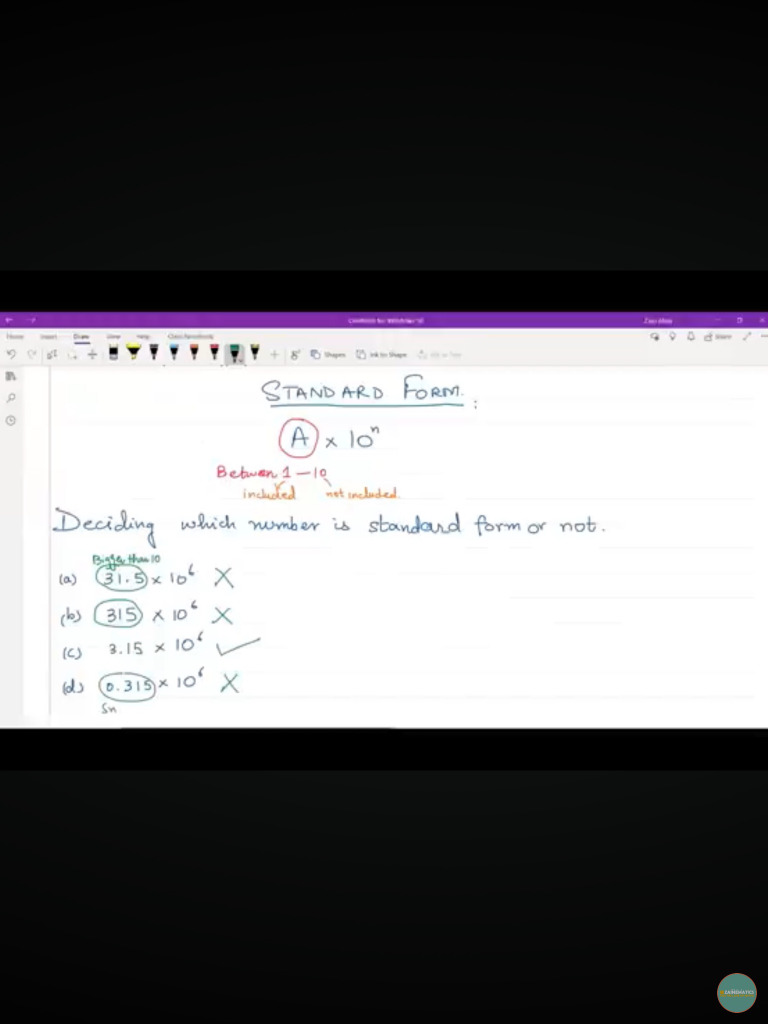 Home Insert Draw View Help Class Notebook
Share
Shapes Ink to Shape
STANDARD FORM :
A × 10ⁿ
Between 1 – 10
included not included
Deciding which number is standard form or not.
Bigger than 10
(a) 31.5 × 10⁶ X
(b) 315 × 10⁶ X
(c) 3.15 × 10⁶ ✓
(d) 0.315 × 10⁶ X
Sn